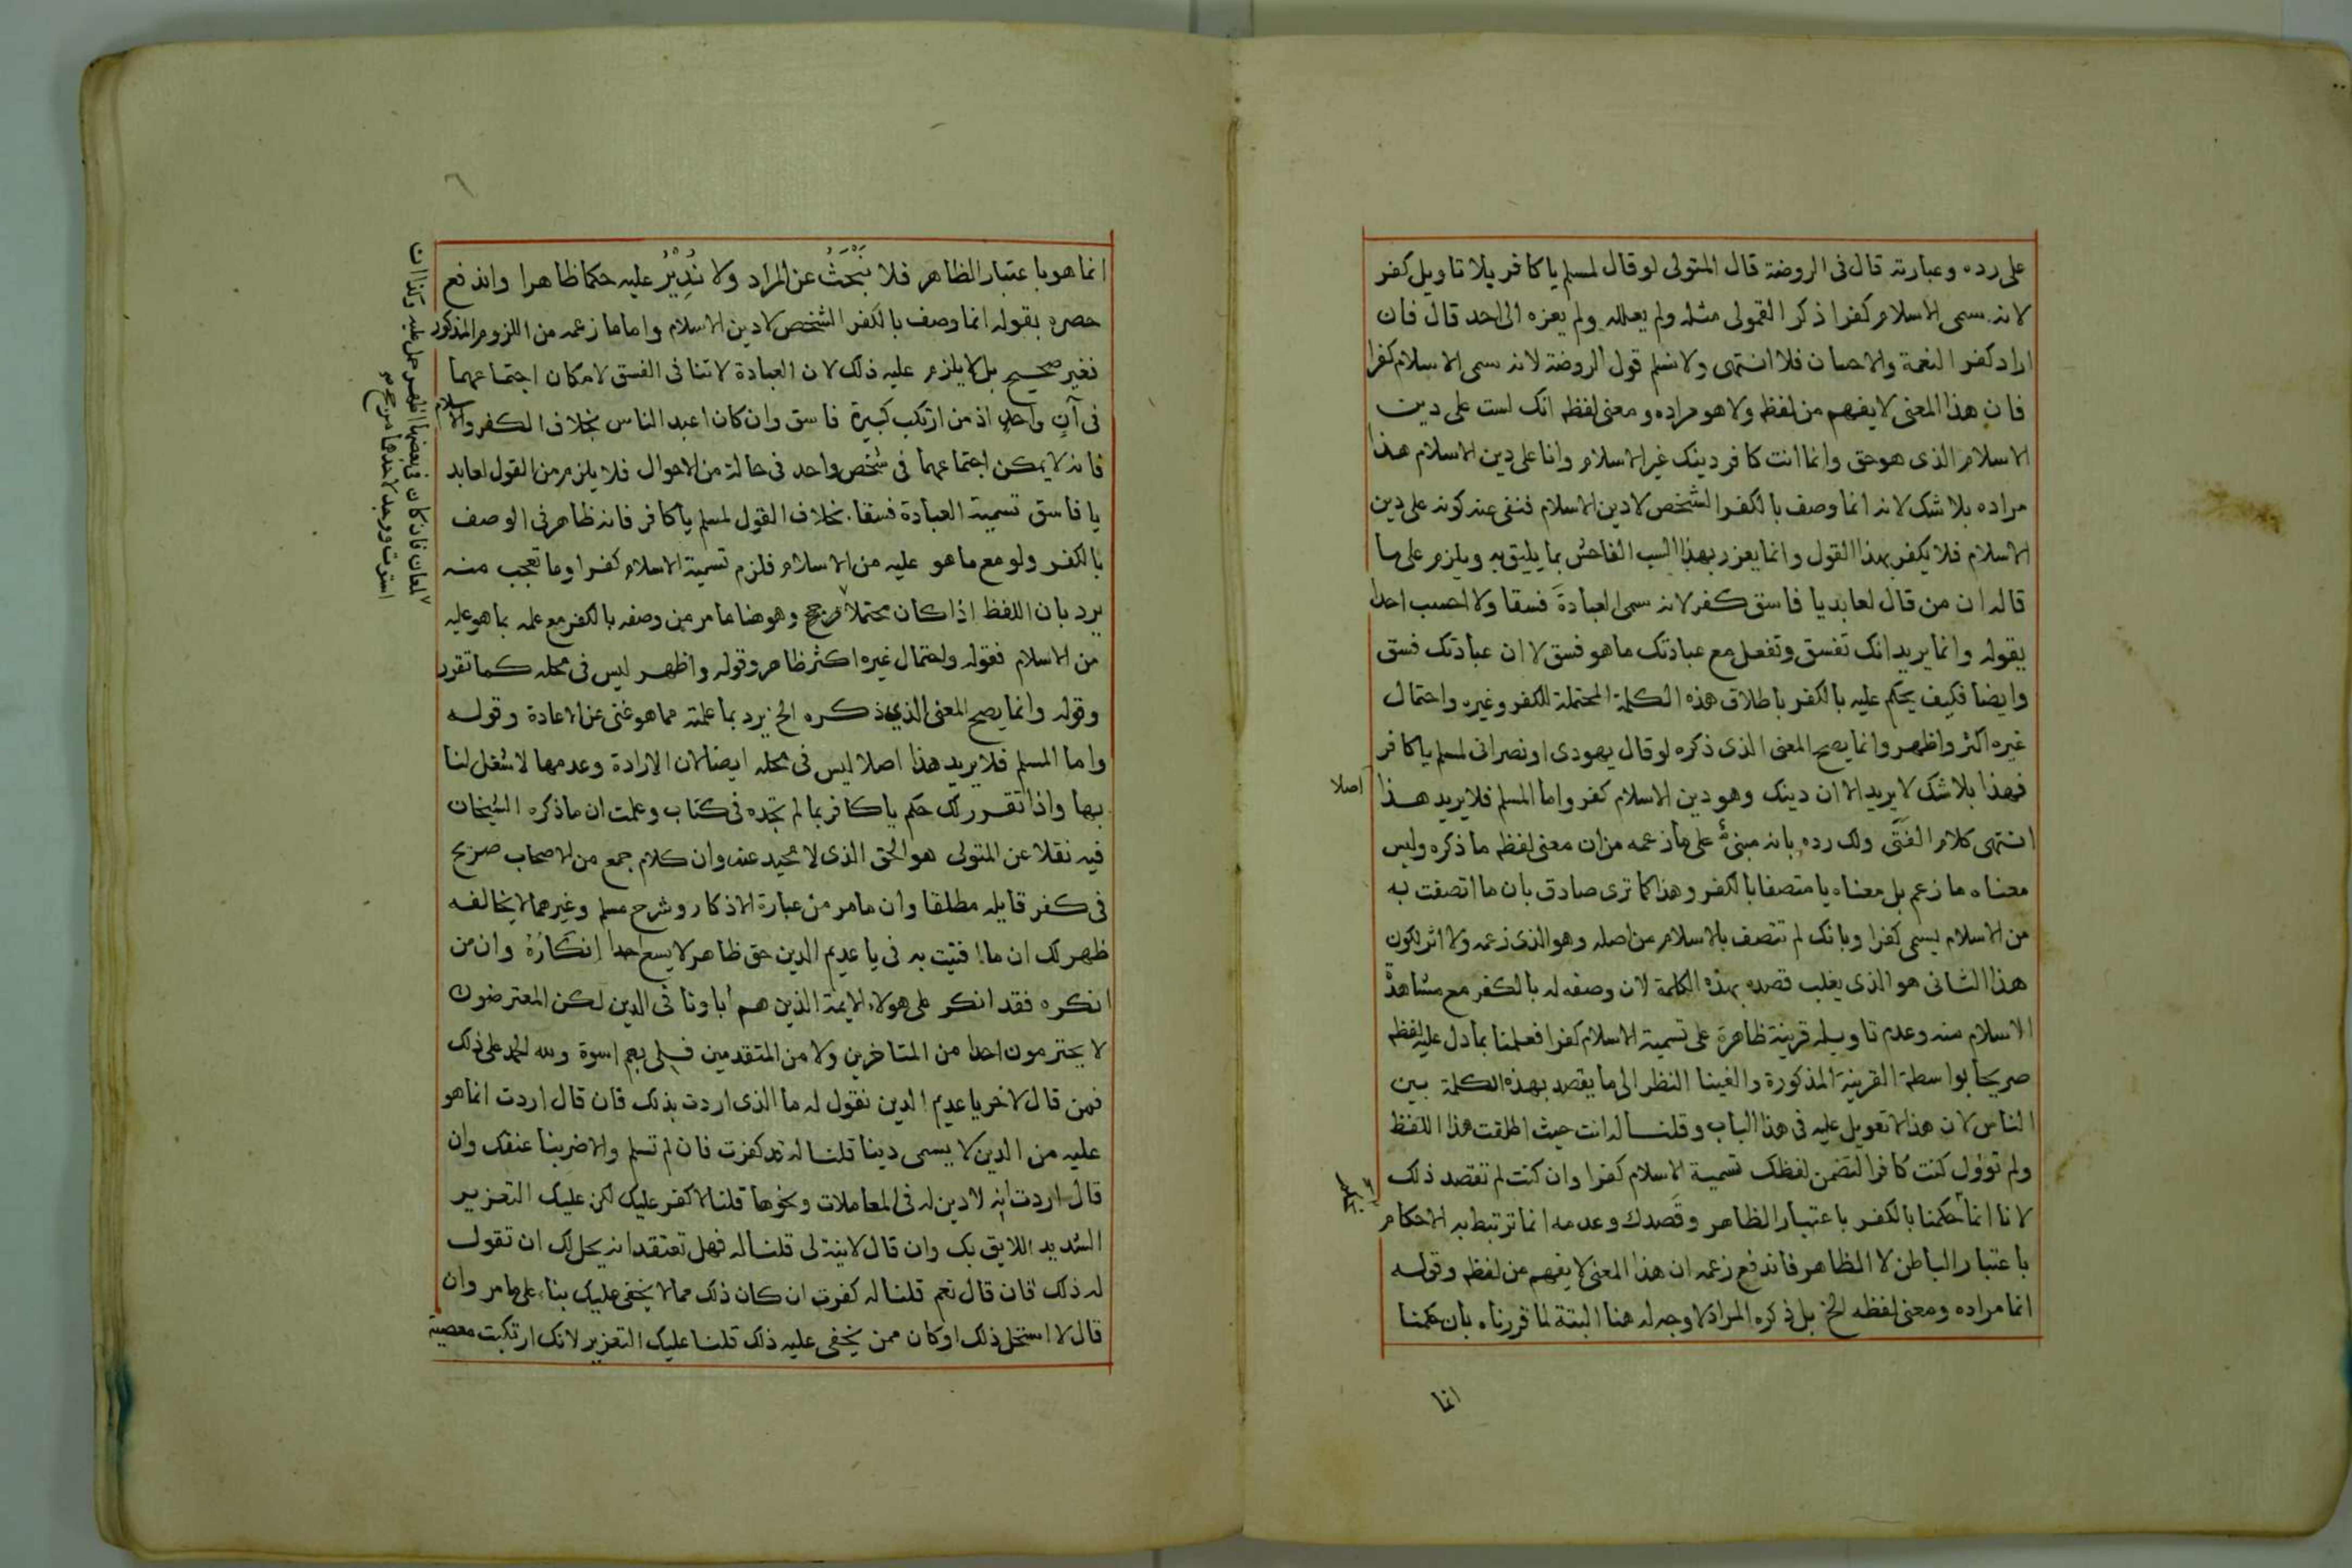 على رده وعبارته قال فى الروضة قال المتولى لو قال لمسلم يا كافر بلا تاويل كفر
لانه سمى الاسلام كفرا ذكر القمولى مثله ولم يعلله ولم يعزه الى احد قال فان
اراد كفر النعمة والاحسان فلا انتهى ولا نسلم قول الروضة لانه سمى الاسلام كفرا
فان هذا المعنى لا يفهم من لفظه ولا هو مراده ومعنى لفظه انك لست على دين
الاسلام الذى هو حق وانما انت كافر دينك غير الاسلام وانا على دين الاسلام هذا
مراده بلا شك لانه انما وصف بالكفر الشخص لا دين الاسلام فنفى عنه كونه على دين
الاسلام فلا يكفر بهذا القول وانما يعزر بهذا السب الفاحش بما يليق به ويلزم على ما
قاله ان من قال لعابد يا فاسق كفر لانه سمى العبادة فسقا ولا احسب احدا
يقوله وانما يريد انك تفسق وتفعل مع عبادتك ما هو فسق لا ان عبادتك فسق
وايضا فكيف يحكم عليه بالكفر باطلاق هذه الكلمة المحتملة للكفر وغيره واحتمال
غيره اكثر واظهر وانما يصح المعنى الذى ذكره لو قال يهودى او نصرانى لمسلم يا كافر
فهذا بلا شك لا يريد الا ان دينك وهو دين الاسلام كفر واما المسلم فلا يريد هذا
اصلا
انتهى كلام الفتى ولك رده بانه مبنى على ما زعمه من ان معنى لفظه ما ذكره وليس
معناه ما زعم بل معناه يا متصفا بالكفر وهذا كما ترى صادق بان ما اتصفت به
من الاسلام يسمى كفرا وبانك لم تتصف بالاسلام من اصله وهو الذى زعمه ولا اثر لكون
هذا الثانى هو الذى يغلب قصده بهذه الكلمة لان وصفه له بالكفر مع مشاهدة
الاسلام منه وعدم تاويله قرينة ظاهرة على تسمية الاسلام كفرا فعملنا بما دل عليه لفظه
صريحا بواسطة القرينة المذكورة والغينا النظر الى ما يقصد بهذه الكلمة بين
الناس لان هذا لا تعويل عليه فى هذا الباب وقلنا له انت حيث اطلقت هذا اللفظ
ولم تؤول كنت كافرا لتضمن لفظك تسمية الاسلام كفرا وان كنت لم تقصد ذلك
لانا انما حكمنا بالكفر باعتبار الظاهر وقصدك وعدمه انما ترتبط به الاحكام
باعتبار الباطن لا الظاهر فاندفع زعمه ان هذا المعنى لا يفهم من لفظه وقوله
انما مراده ومعنى لفظه الخ بل ذكره المراد لا وجه له هنا البتة لما قررناه بان حكمنا
انما
٦
انما هو باعتبار الظاهر فلا نَبْحَثُ عن المراد ولا نُدِيْرُ عليه حكما ظاهرا واندفع
حصره بقوله انما وصف بالكفر الشخص لا دين الاسلام واما ما زعمه من اللزوم المذكور
فغير صحيح بل لا يلزم عليه ذلك لان العبادة لا تنافى الفسق لامكان اجتماعهما
فى آنٍ واحدٍ اذ من ارتكب كبيرة فاسق وان كان اعبد الناس بخلاف الكفر والاسلام
فانه لا يمكن اجتماعهما فى شخص واحد فى حالة من الاحوال فلا يلزم من القول لعابد
يا فاسق تسمية العبادة فسقا بخلاف القول لمسلم يا كافر فانه ظاهر فى الوصف
بالكفر ولو مع ما هو عليه من الاسلام فلزم تسمية الاسلام كفرا وما تعجب منه
يرد بان اللفظ اذا كان محتملا وهو هنا ما مر من وصفه بالكفر مع علمه بما هو عليه
لمعان فان كان فى بعضها اظهر حمل عليه وكذا ان
استوت ووجد لاحدها مرجح
من الاسلام فقوله واحتمال غيره اكثر ظاهر وقوله واظهر ليس فى محله كما تقرر
وقوله وانما يصح المعنى الذى ذكره الخ يرد بما علمته مما هو غنى عن الاعادة وقوله
واما المسلم فلا يريد هذا اصلا ليس فى محله ايضا لان الارادة وعدمها لا شغل لنا
بها واذا تقرر لك حكم يا كافر بما لم تجده فى كتاب وعلمت ان ما ذكره الشيخان
فيه نقلا عن المتولى هو الحق الذى لا محيد عنه وان كلام جمع من الاصحاب صريح
فى كفر قايله مطلقا وان ما مر من عبارة الاذكار وشرح مسلم وغيرهما لا يخالفه
ظهر لك ان ما افتيت به فى يا عديم الدين حق ظاهر لا يسع احدا انكَارُهُ وان من
انكره فقد انكر على هولاء الايمة الذين هم أباونا فى الدين لكن المعترضون
لا يحترمون احدا من المتاخرين ولا من المتقدمين فلى بهم اسوة ولله الحمد على ذلك
فمن قال لاخر يا عديم الدين نقول له ما الذى اردت بذلك فان قال اردت انما هو
عليه من الدين لا يسمى دينا قلنا له قد كفرت فان لم تسلم والا ضربنا عنقك وان
قال اردت انه لا دين له فى المعاملات ونحوها قلنا لا كفر عليك لكن عليك التعزير
الشديد اللايق بك وان قال لا نية لى قلنا له فهل تعتقد انه يحل لك ان تقول
له ذلك فان قال نعم قلنا له كفرت ان كان ذلك مما لا يخفى عليك بناء على ما مر وان
قال لا استحل ذلك او كان ممن يخفى عليه ذلك قلنا عليك التعزير لانك ارتكبت معصية